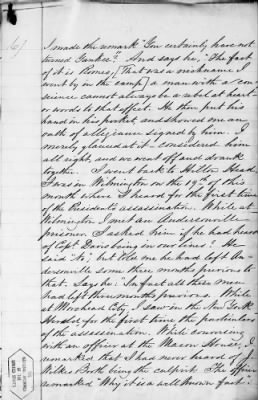 6/
I made the remark "You certainly have not
turned Yankee?" And says he, "The fact
of it is Romeo, [That was a nickname I
went by in the camp] a man with a con
science cannot always be a rebel at heart"
or words to that effect. He then put his
hand in his pocket, and showed me an
oath of allegiance signed by him. I
merely glanced at it - considered him
all right, and we went off and drank
together. I went back to Hilton Head,
I was in Wilmington on the 19th of this
month where I heard for the first time
of the Presidents assassination. While at
Wilmington I met an Andersonville
prisoner. I asked him if he had heard
of Capt Davis being in our lines? He
said "No", but told me he had left An-
dersonville some three months previous to
that. Says he: In fact all these men
had left three months previous. While
at Morehead City, I saw in the New York
Herald, for the first time the particulars
of the assassination. While conversing
with an officer at the Macon House, I
remarked that I had never heard of J.
Wilkes Booth being the culprit. The officer
remarked "Why it is a well known fact."